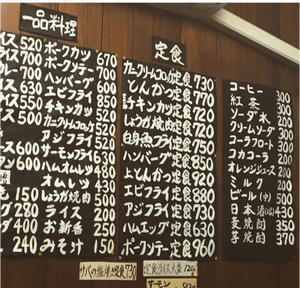 一品料理
イス 520
イス 700
レー 700
イス 630
イス 550
イス 500
ス 600
ス 600
毛 150
グ 280
ダ 400
240
ポークカツ 670
ポークソテー 700
ハンバーグ 600
エビフライ 630
チキンカツ 520
カニクリームコロッケ 520
アジフライ 500
サーモンフライ 630
ハムオムレツ 480
オムレツ 430
しょうが焼肉 500
ライス 200
お新香 250
みそ汁 150
定食
カニクリームコロッケ定食 730
とんかつ定食 770
チキンカツ定食 720
しょうが焼肉定食 700
白身魚フライ定食 750
ハンバーグ定食 850
上とんかつ定食 920
エビフライ定食 880
アジフライ定食 730
ハムエッグ定食 630
ポークソテー定食 960
コーヒー 300
紅茶 300
ソーダ水
クリームソーダ
コーラフロート
コカコーラ
オレンジジュース
ミルク 200
ビール(中) 500
日本酒
麦焼酎 350
芋焼酎 370
サバの塩焼定食 730
定食ライス大盛 120
サーモン